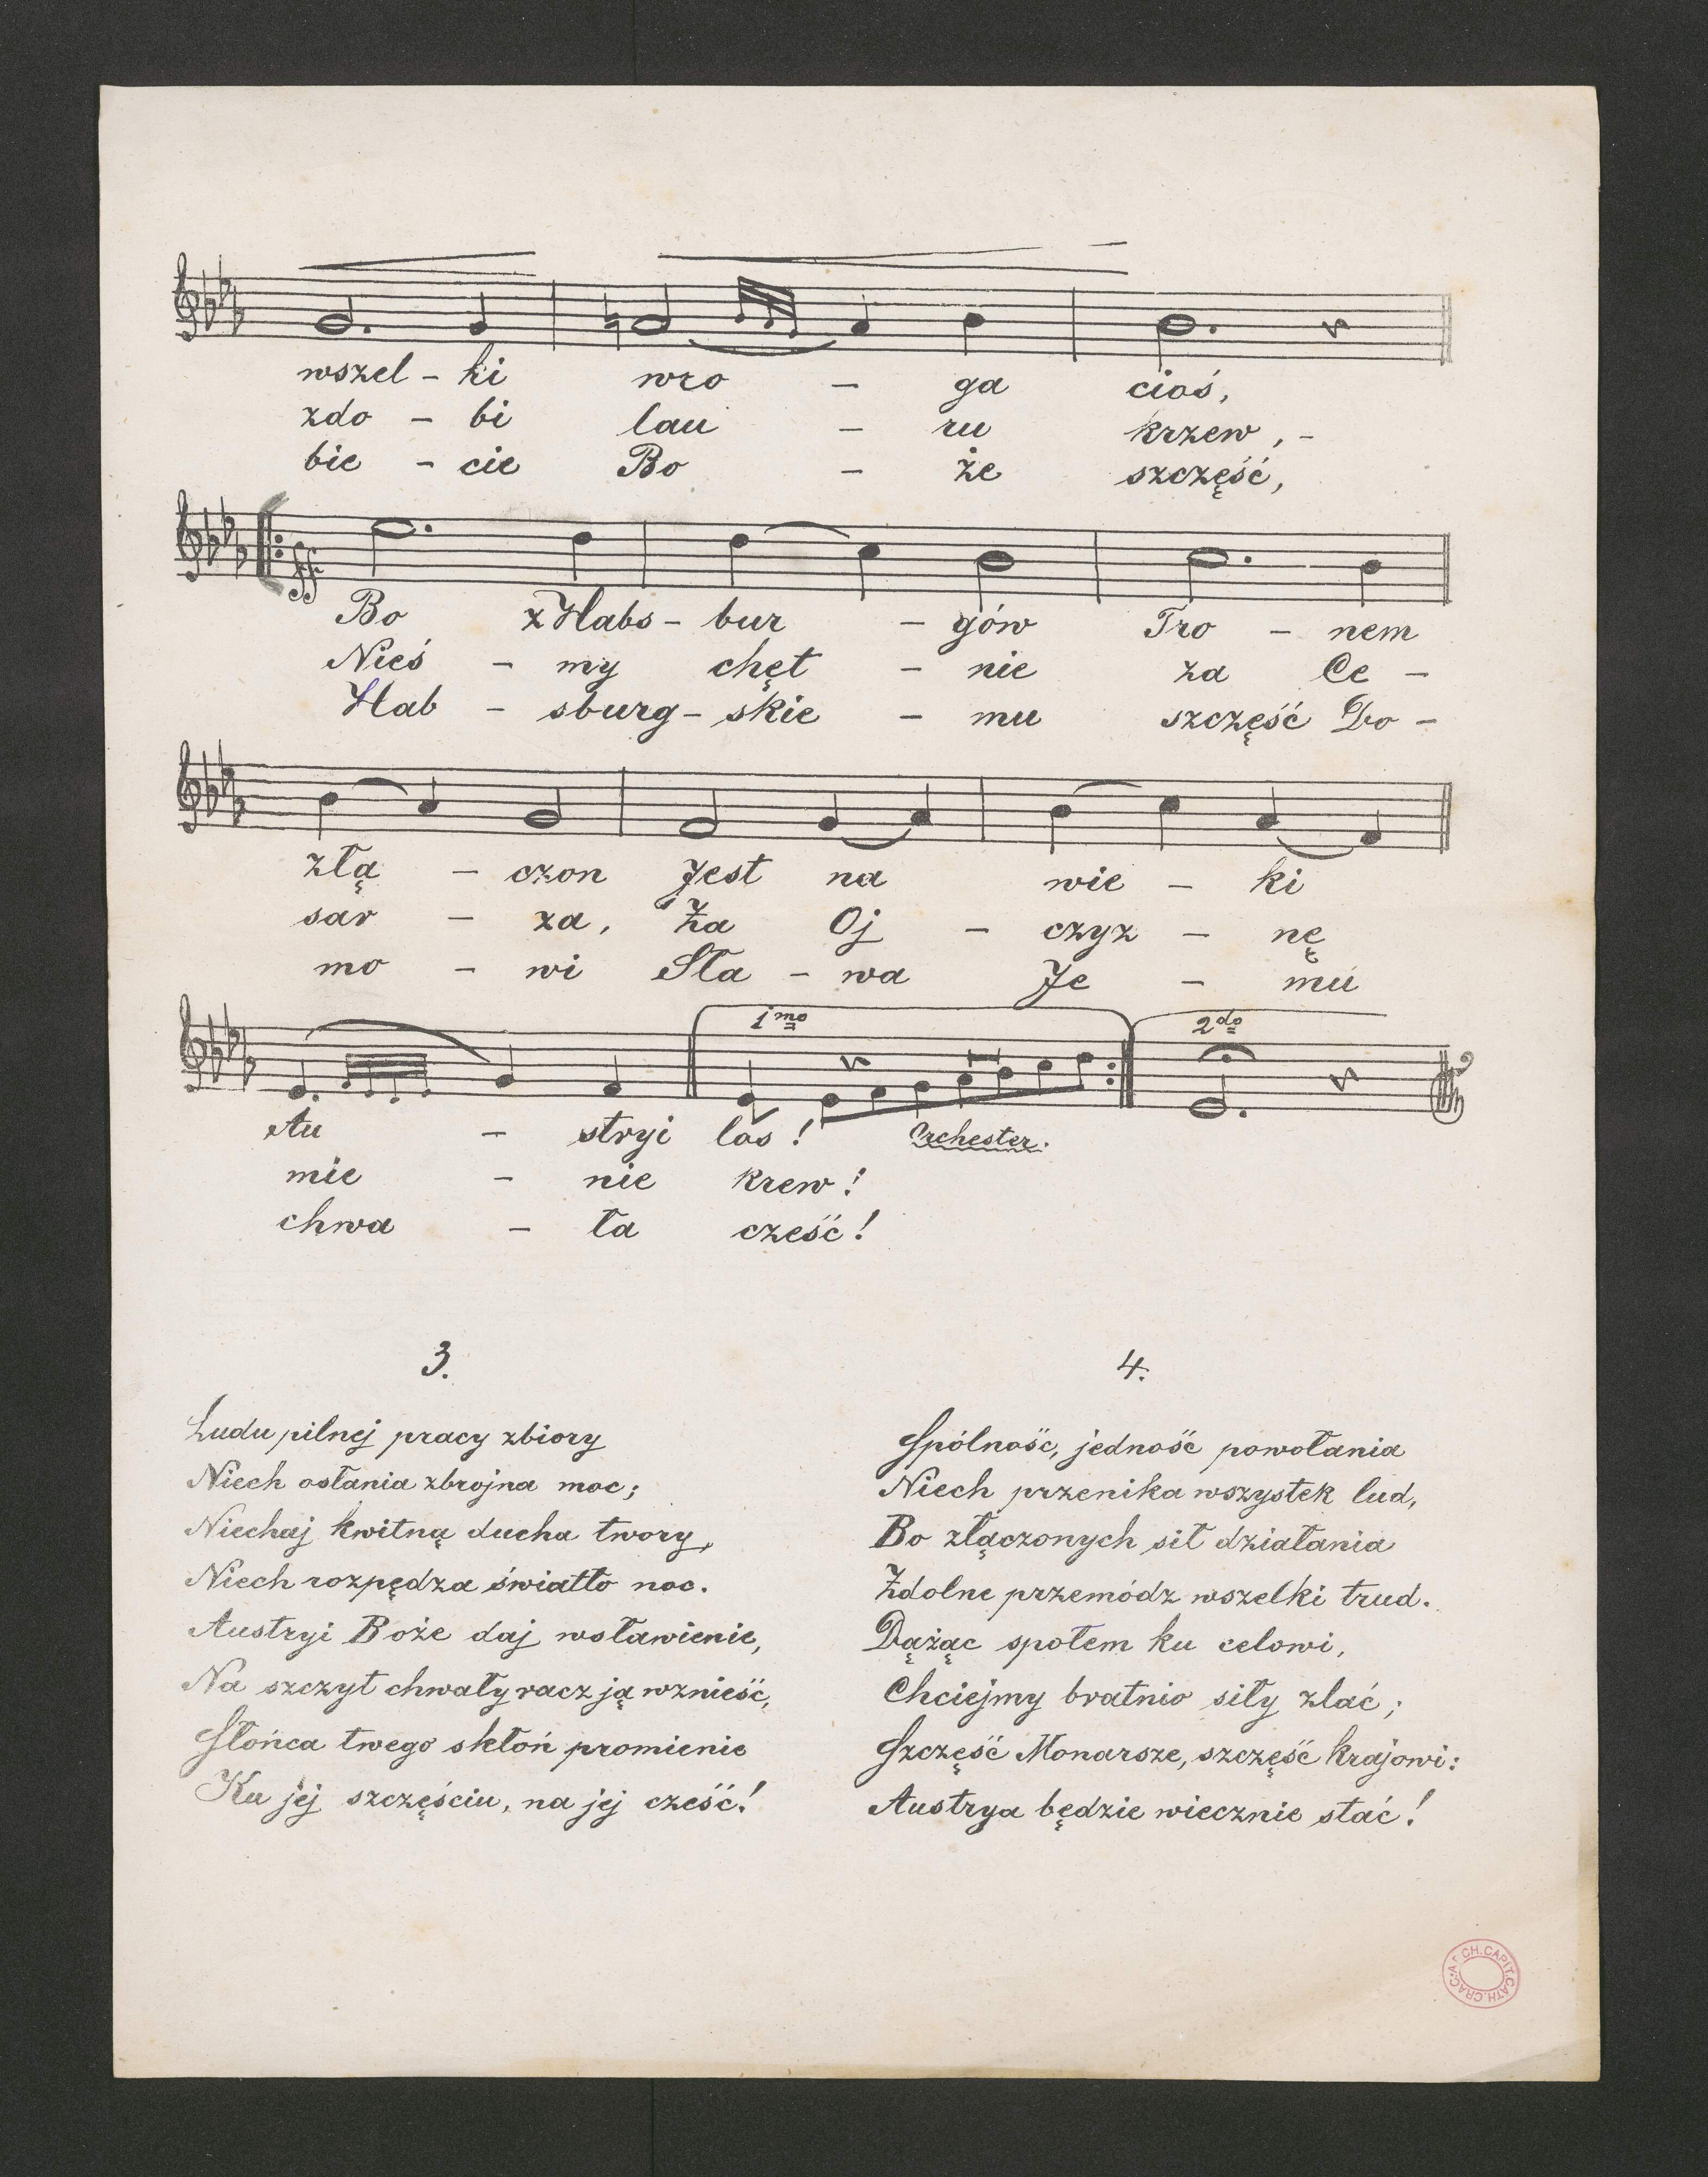 wszel - ki wro - ga cios,
zdo - bi lau - ru krzew, -
bie - cie Bo - że szczęść,
ff
Bo z Habs - bur - gów Tro - nem
Nieś - my chęt - nie za Ce -
Hab - sburg - skie - mu szczęść Do -
złą - czon Jest na wie - ki
sar - za, Za Oj - czyz - nę
mo - wi Sła - wa Je - mu
1mo 2do
Au - stryi los! Orchester.
mie - nie krew!
chwa - ła cześć!
3.
Ludu pilnej pracy zbiory
Niech osłania zbrojna moc;
Niechaj kwitną ducha twory,
Niech rozpędza światło noc.
Austryi Boże daj wsławienie,
Na szczyt chwały racz ją wznieść,
Słońca twego skłoń promienie
Ku jej szczęściu, na jej cześć!
4.
Spólność, jedność powołania
Niech przenika wszystek lud,
Bo złączonych sił działania
Zdolne przemódz wszelki trud.
Dążąc społem ku celowi,
Chciejmy bratnio siły zlać;
Szczęść Monarsze, szczęść krajowi:
Austrya będzie wiecznie stać!
ARCH. CAPIT. CATH. CRAC.